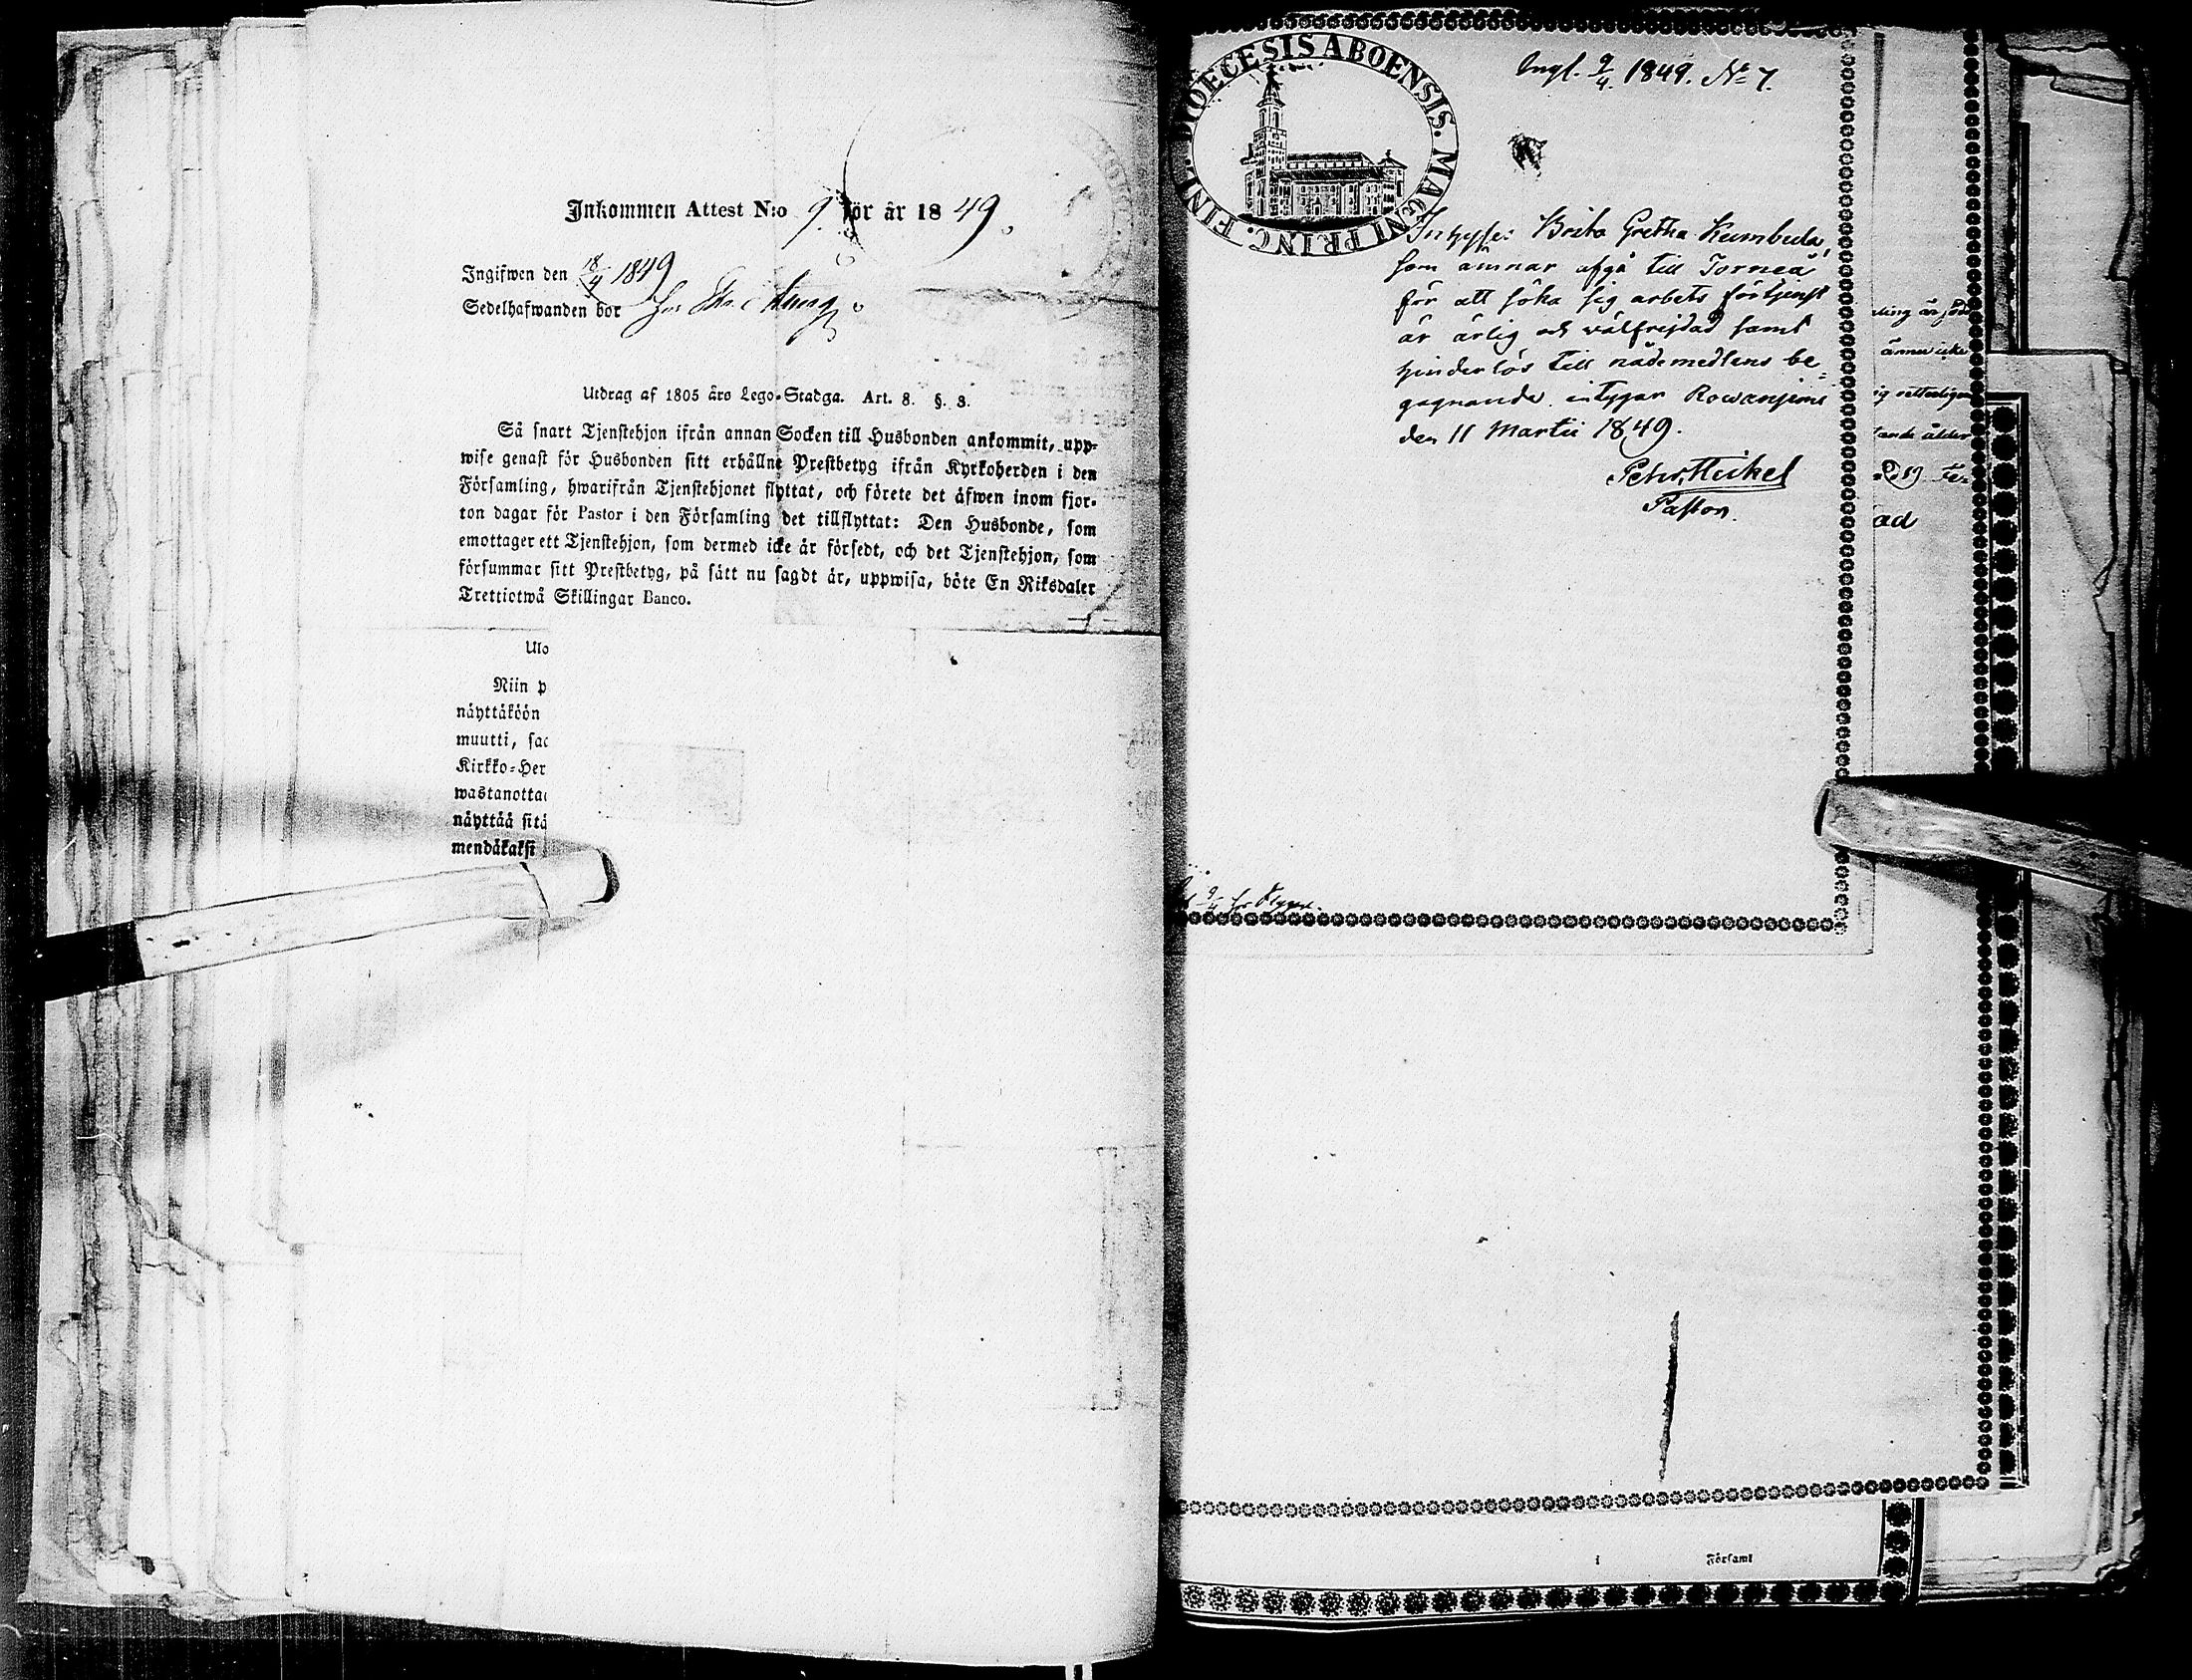 Inkommen Attest N:o 9. för år 1849.
Ingifwen den 18/4 1849
Sedelhafwanden bor hos
Utdrag af 1805 års Lego-Stadga. Art. 8. §. 8.
Så snart Tjenstehjon ifrån annan Socken till Husbonden ankommit, upp-
wise genast för Husbonden sitt erhållne Prestbetyg ifrån Kyrkoherden i den
Församling, hwarifrån Tjenstehjonet flyttat, och förete det äfwen inom fjor-
ton dagar för Pastor i den Församling det tillflyttat: Den Husbonde, som
emottager ett Tjenstehjon, som dermed icke är försedt, och det Tjenstehjon, som
försummar sitt Prestbetyg, på sätt nu sagdt är, uppwisa, böte En Riksdaler
Trettiotwå Skillingar Banco.
Ulo
Niin p
näyttäköön
muutti, sac
Kirkko-Her
wastanottaa
näyttää sitä
mendäkaksi
DIOECESIS ABOENSIS. MAGNI PRINC. FINL.
Ingl. 9/4. 1849. No 7.
Brita Gretha Kumbula,
som ämnar afgå till Torneå
för att söka sig arbets förtjenst
är ärlig och välfrejdad samt
hinderlös till nådemedlens be-
gagnande intygar Rowanjemi
den 11 Martii 1849.
Petr. Heikel
Pastor.
9/4 hos
ling är född
ännu icke
ig rätteligen
tande ålder
ad
i Församl